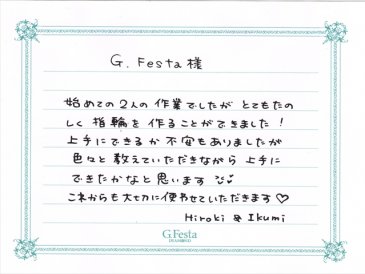 G. Festa 様
始めての2人の作業でしたが とてもたの
しく 指輪を 作ることができました！
上手にできるか 不安もありましたが
色々と 教えていただきながら 上手に
できたかなと 思います
これからも大切に使わせていただきます♡
Hiroki & Ikumi
G.Festa
DIAMOND